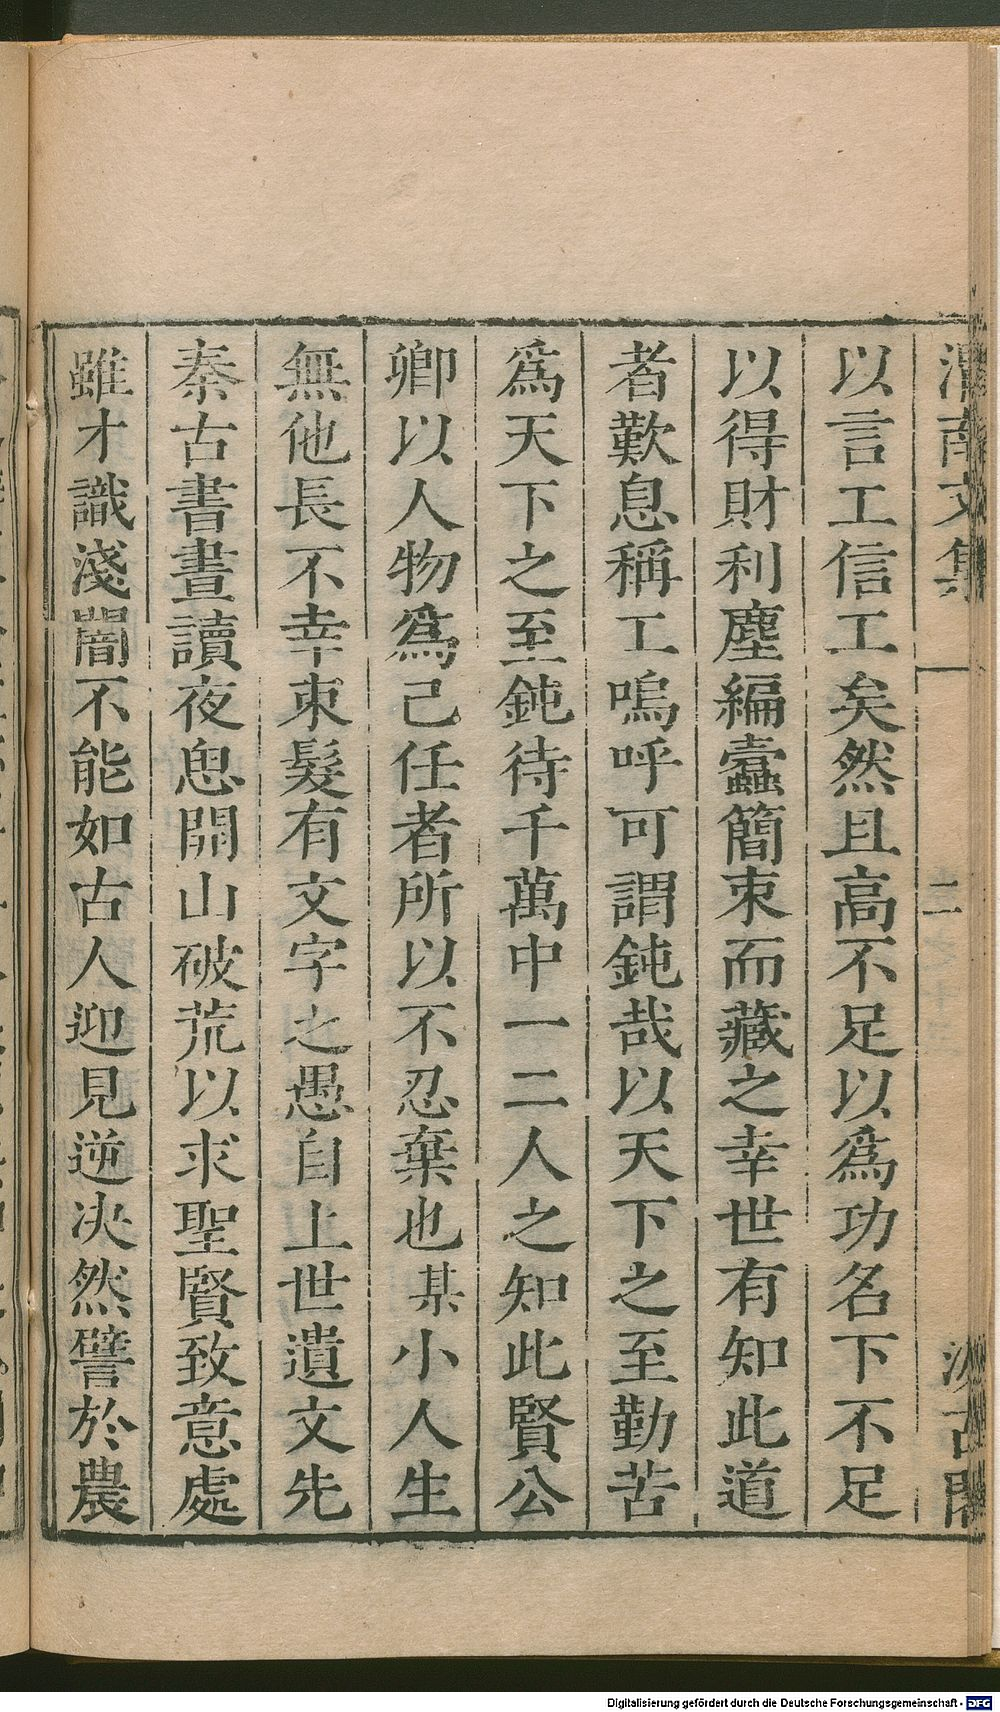 渭南文集 二 汲古閣
以言工信工矣然且高不足以爲功名下不足
以得財利塵編蠹簡束而藏之幸世有知此道
者歎息稱工嗚呼可謂鈍哉以天下之至勤苦
爲天下之至鈍待千萬中一二人之知此賢公
卿以人物爲己任者所以不忍棄也某小人生
無他長不幸束髮有文字之愚自上世遺文先
秦古書晝讀夜思開山破荒以求聖賢致意處
雖才識淺闇不能如古人迎見逆决然譬於農
Digitalisierung gefördert durch die Deutsche Forschungsgemeinschaft - DFG